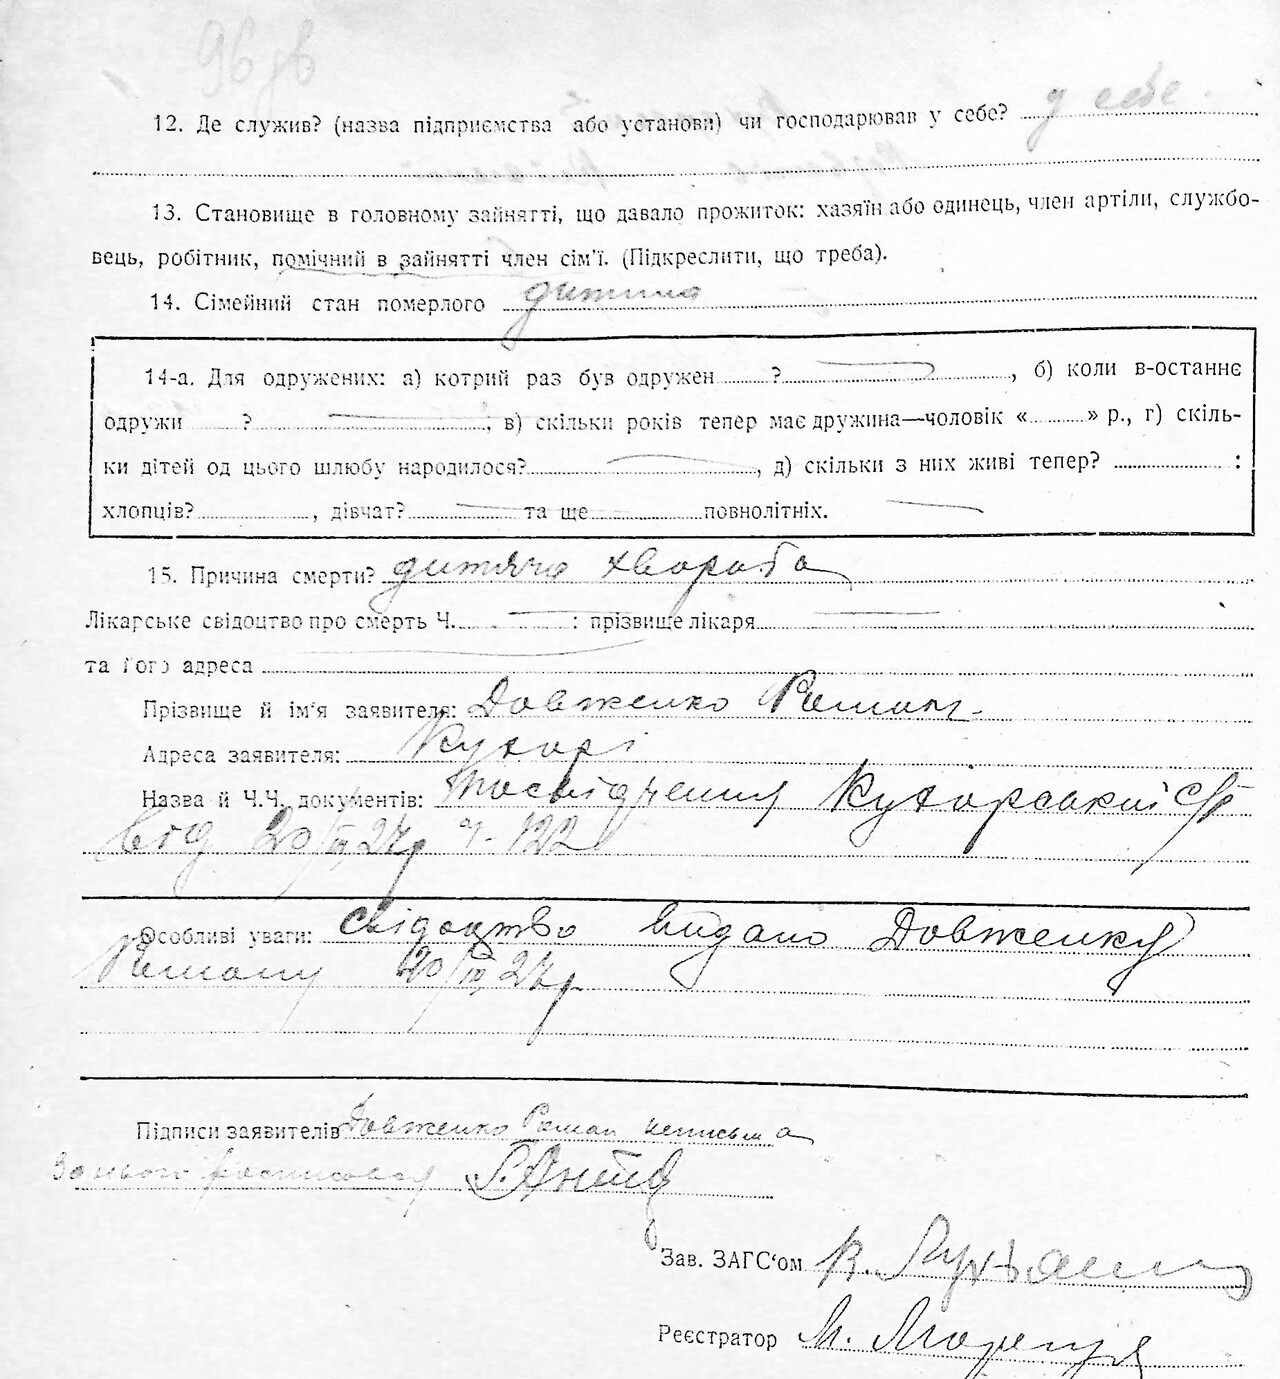 96 зв
12. Де служив? (назва підприємства або установи) чи господарював у себе? у себе.
13. Становище в головному зайнятті, що давало прожиток: хазяїн або одинець, член артіли, службо-
вець, робітник, помічний в зайнятті член сім'ї. (Підкреслити, що треба).
14. Сімейний стан померлого дитина
14-а. Для одружених: а) котрий раз був одружен ? , б) коли в-останнє
одружи ? ; в) скільки років тепер має дружина—чоловік « » р., г) скіль-
ки дітей од цього шлюбу народилося? , д) скільки з них живі тепер? :
хлопців? , дівчат? та ще повнолітніх.
15. Причина смерти? дитяча хвороба
Лікарське свідоцтво про смерть Ч. : прізвище лікаря
та його адреса
Прізвище й ім'я заявителя: Довженко Роман
Адреса заявителя: Кухарі
Назва й Ч.Ч. документів: Посвідчення Кухарської с/р
від 20/III 27р ч-122
Особливі уваги: свідоцтво видано Довженку
Роману 20/III 27р
Підписи заявителів Довженко Роман неписьм а
За нього росписався
Зав. ЗАГС'ом В.
Реєстратор М.